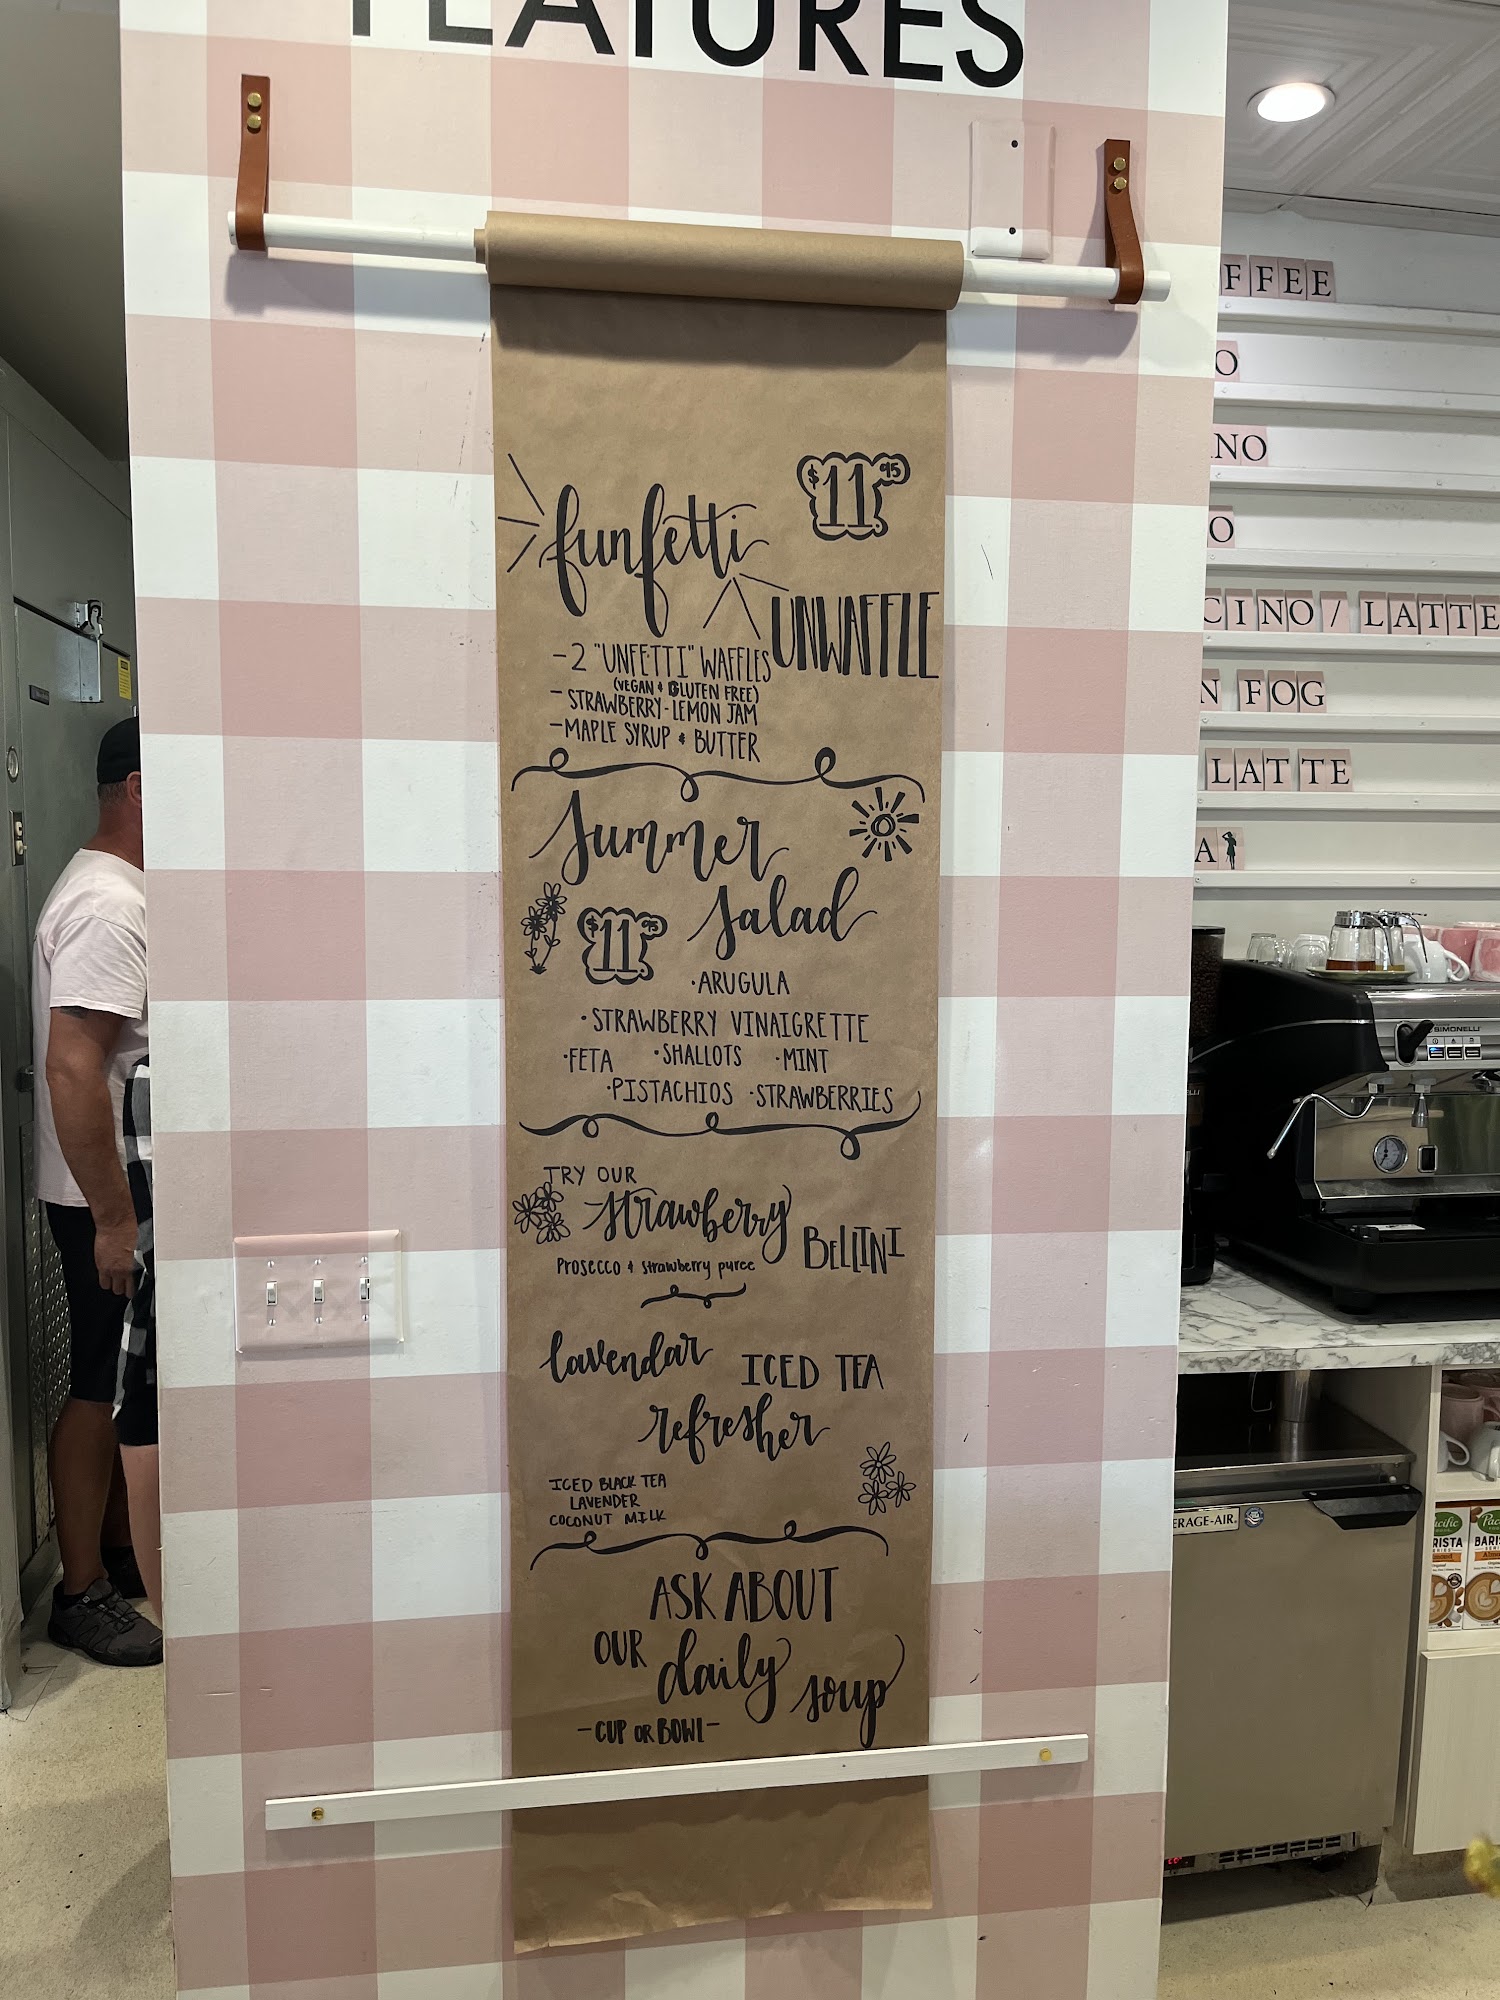 FEATURES
funfetti
$11.95
UNWAFFLE
- 2 "UNFETTI" WAFFLES
(VEGAN & GLUTEN FREE)
- STRAWBERRY-LEMON JAM
- MAPLE SYRUP & BUTTER
Summer
Salad
$11.95
·ARUGULA
·STRAWBERRY VINAIGRETTE
·FETA ·SHALLOTS ·MINT
·PISTACHIOS ·STRAWBERRIES
TRY OUR
strawberry
BELLINI
Prosecco & strawberry puree
lavendar ICED TEA
refresher
ICED BLACK TEA
LAVENDER
COCONUT MILK
ASK ABOUT
OUR daily soup
-CUP OR BOWL-
FFEE
O
NO
O
CINO / LATTE
N FOG
LATTE
A
SIMONELLI
ERAGE-AIR
Pacific
BARISTA
SERIES
Almond